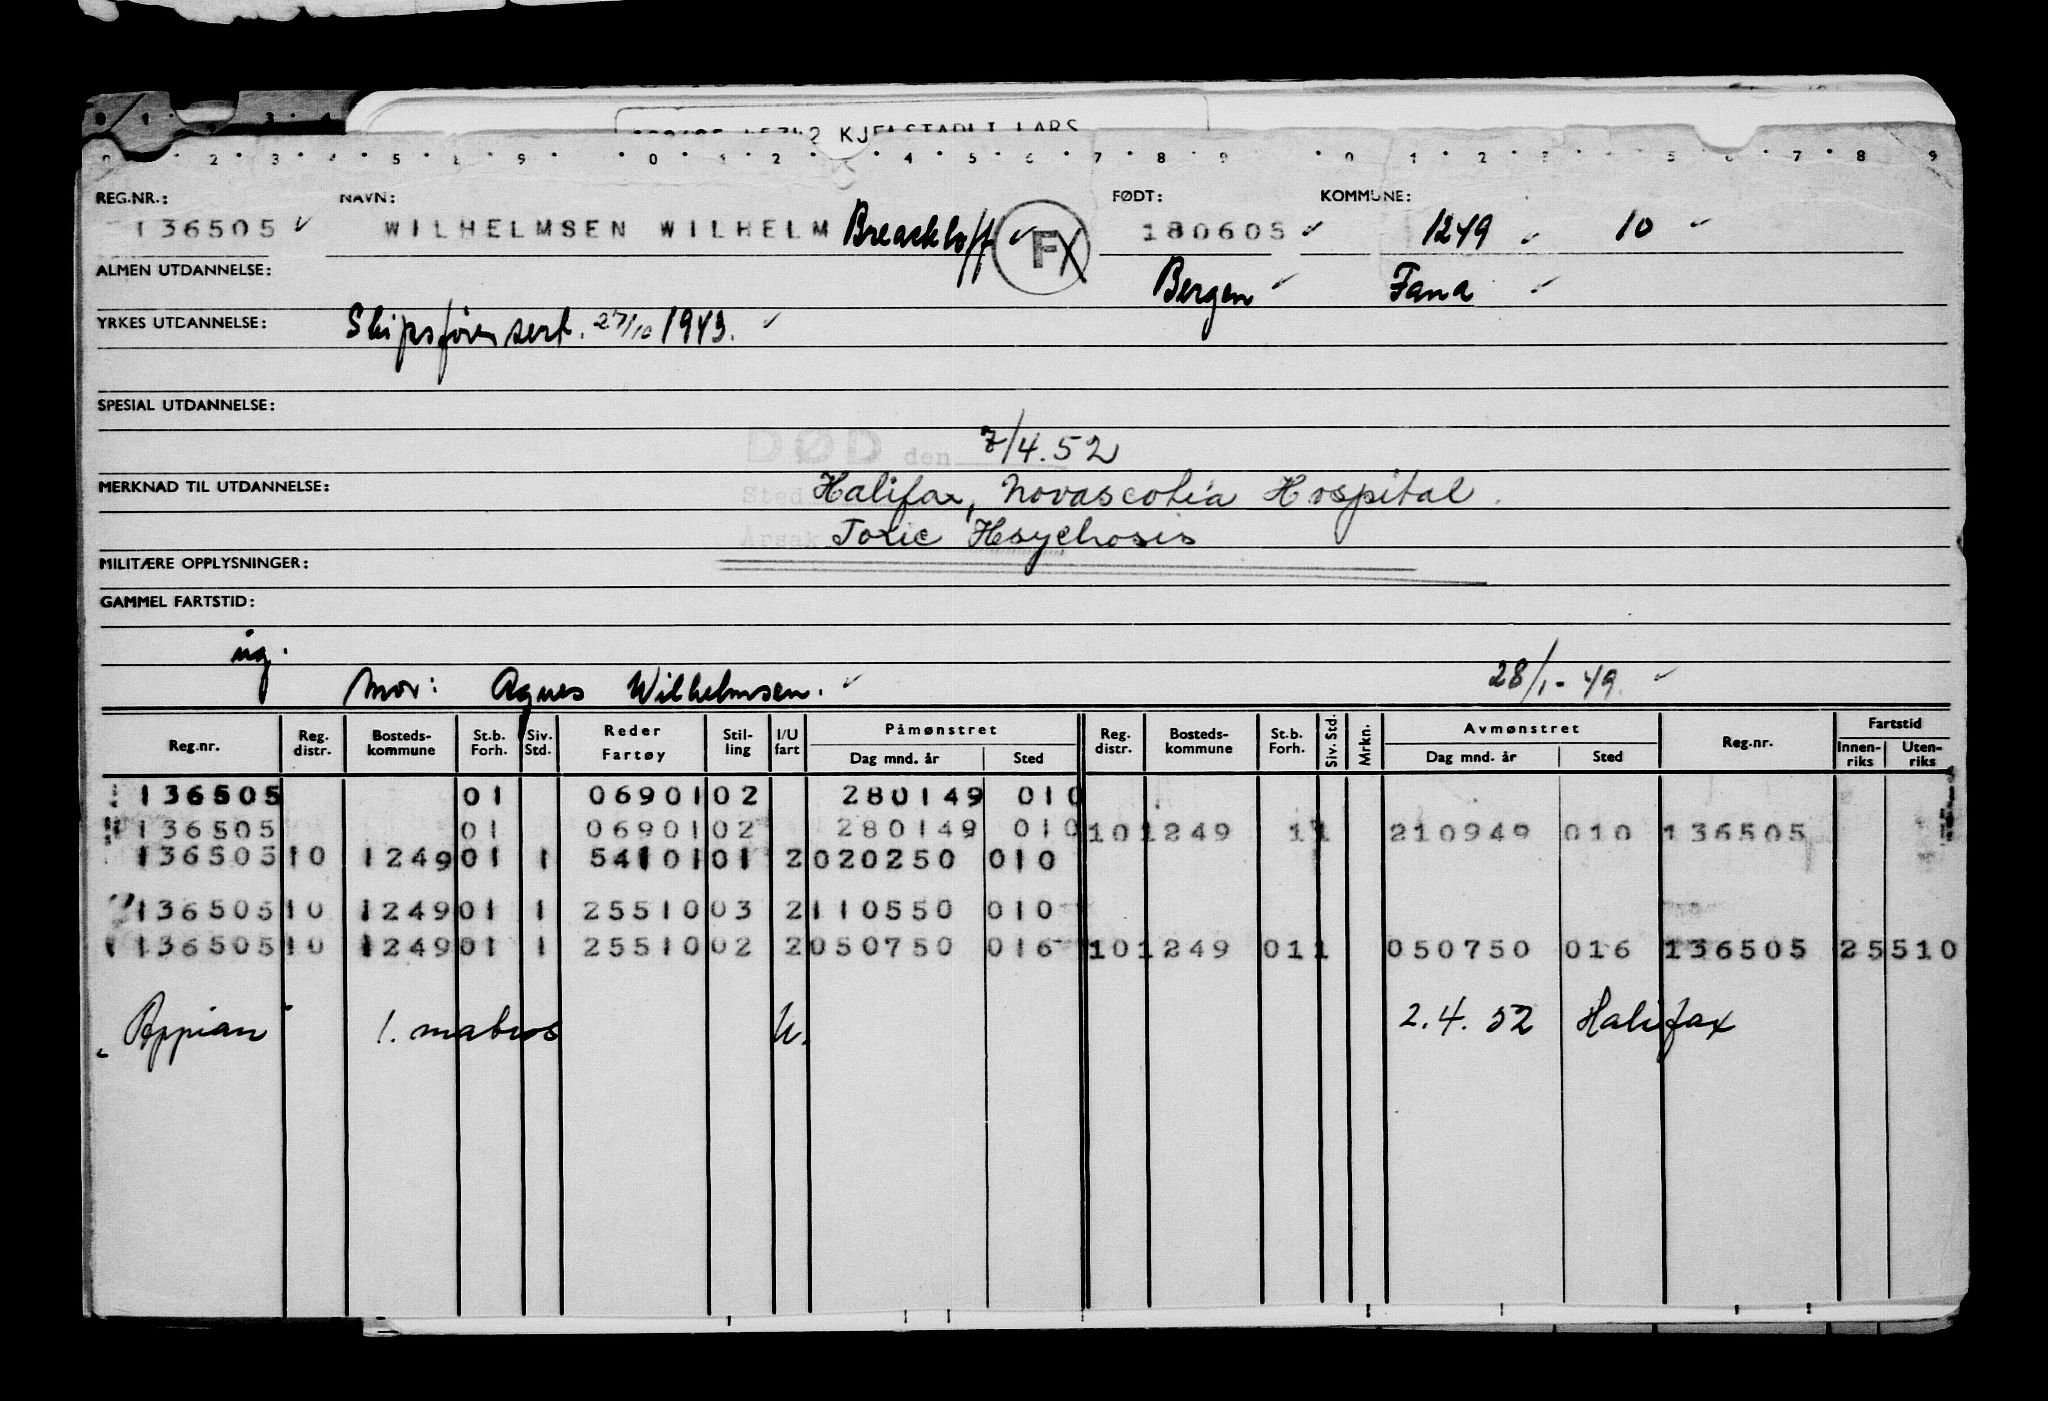 KJELSTADLI LARS
REG.NR.: NAVN: FØDT: KOMMUNE:
136505 WILHELMSEN WILHELM F 180605 1249 10
ALMEN UTDANNELSE: Bergen Fana
YRKES UTDANNELSE: Skipsførersert. 27/10 1943.
SPESIAL UTDANNELSE:
DØD den 7/4.52
MERKNAD TIL UTDANNELSE: Sted Halifax, Novascotia Hospital.
Årsak Toxic Psychosis
MILITÆRE OPPLYSNINGER:
GAMMEL FARTSTID:
ug.
Mor: Agnes Wilhelmsen. 28/1-49.
Reg.nr. Reg. distr. Bosteds-kommune St.b. Forh. Siv. Std. Reder Fartøy Stil-ling I/U fart Påmønstret Dag mnd. år Sted Reg. distr. Bosteds-kommune St.b. Forh. Siv. Std. Mrkn. Avmønstret Dag mnd. år Sted Reg.nr. Fartstid Innen-riks Uten-riks
136505 01 06901 02 280149 010
136505 01 06901 02 280149 010 10 1249 11 210949 010 136505
136505 10 1249 01 1 54101 01 2 020250 010
136505 10 1249 01 1 25510 03 2 110550 010
136505 10 1249 01 1 25510 02 2 050750 016 10 1249 011 050750 016 136505 25510
Appian 1. matros U. 2.4.52 Halifax